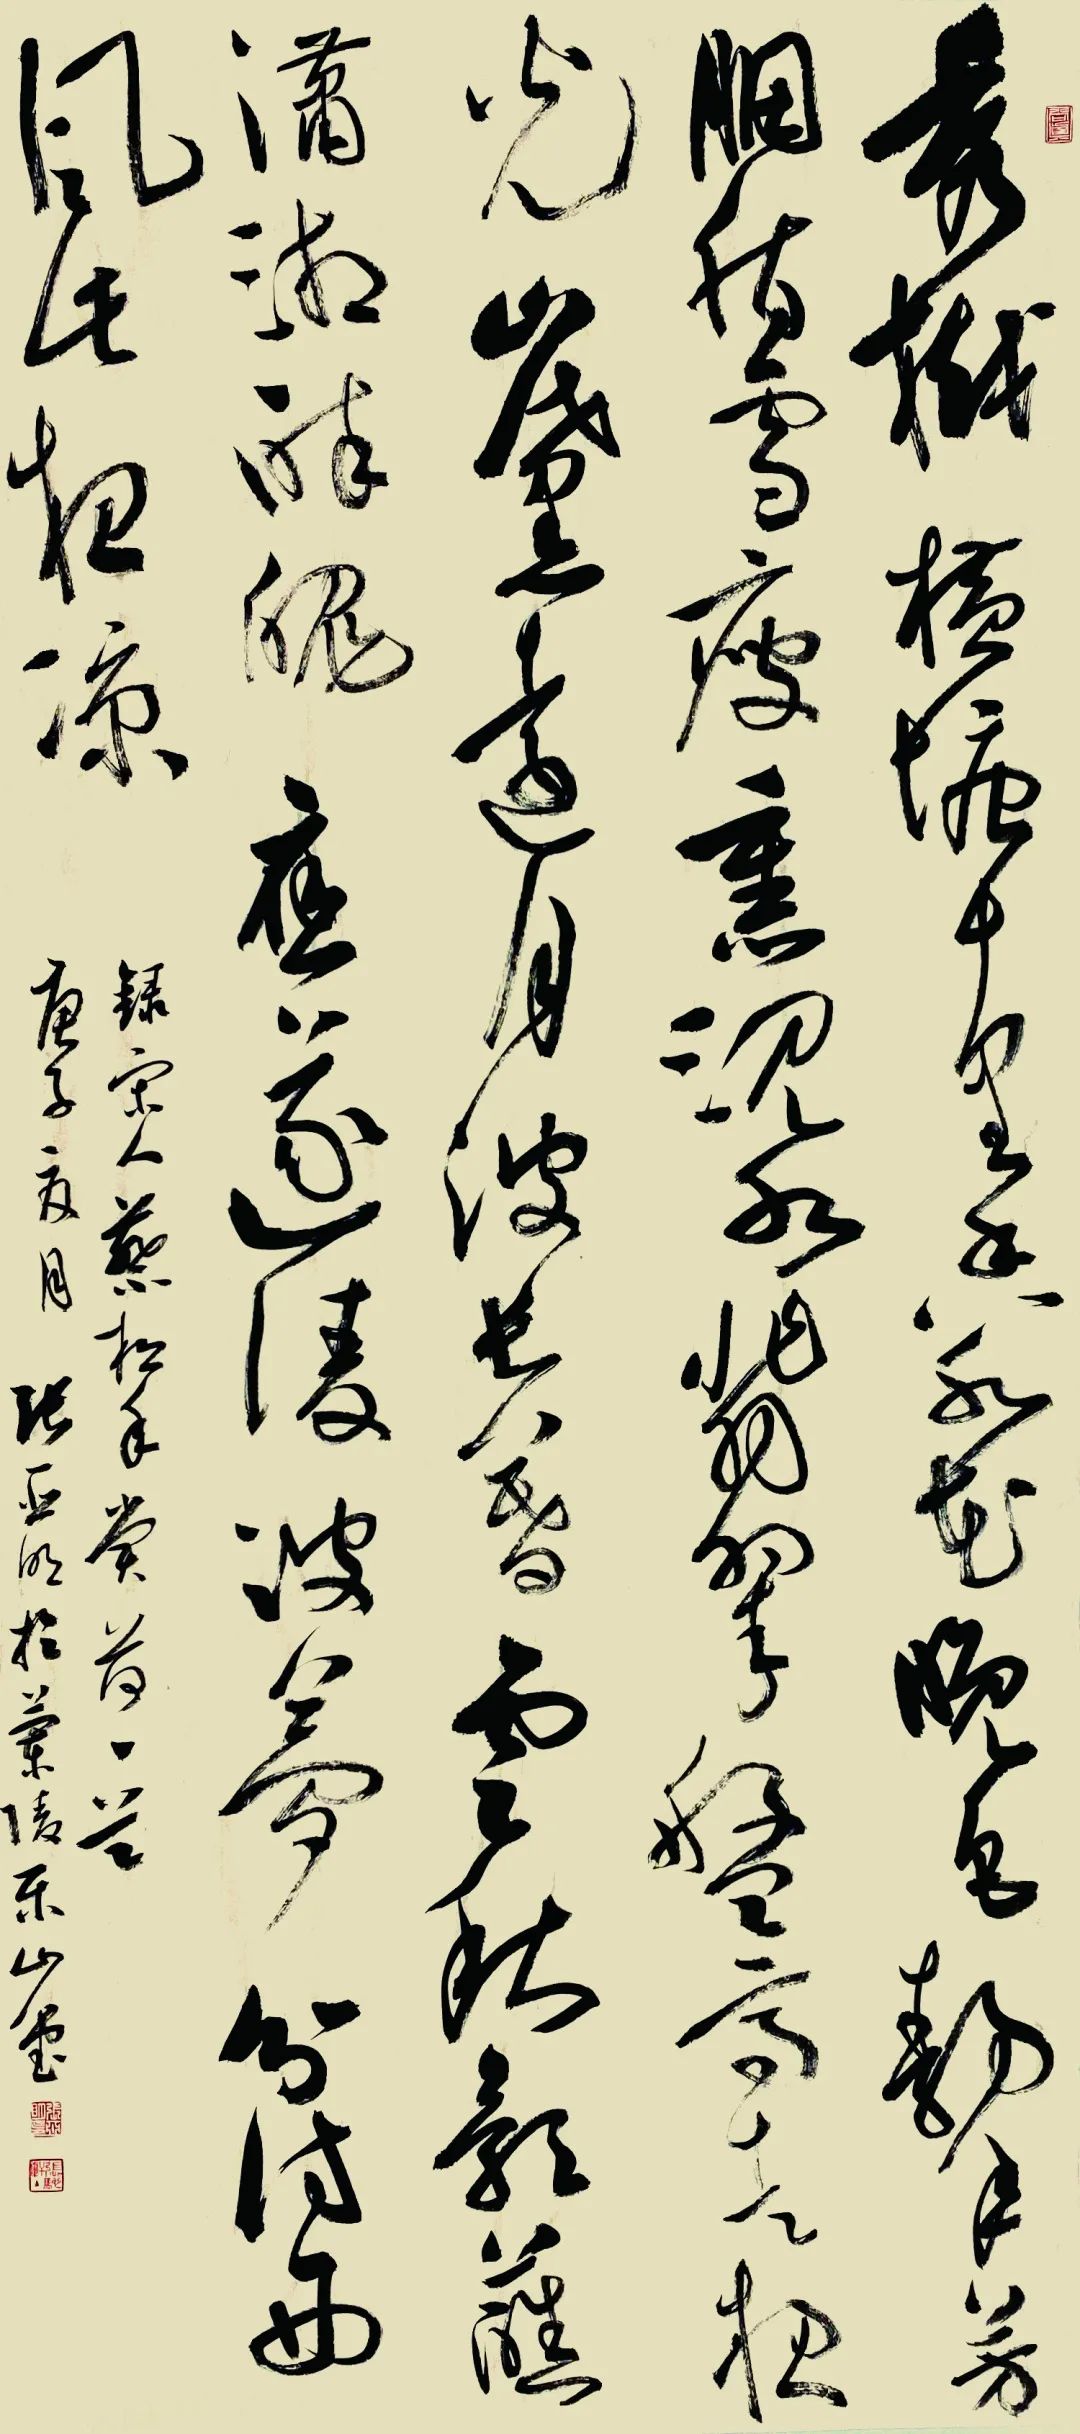 秀樾橫塘十里香水花晚色靜年芳
胭脂雪瘦熏沉水翡翠盤高走夜
光山黛遠月波長暮雲秋影蘸
瀟湘醉魂應逐凌波夢分付西
風此夜涼
錄宋人蔡松年賞荷一首
庚子夏月張亞明於蘭陵樂山堂